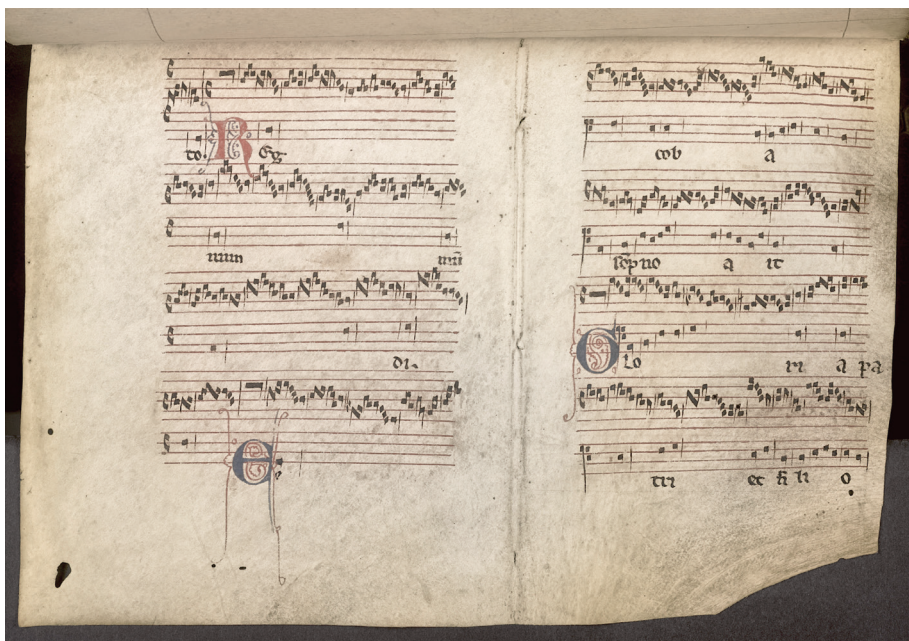 to. Reg
num mun
di.
E
cob a
sõpno a it
Glo ri a pa
tri et fi li o